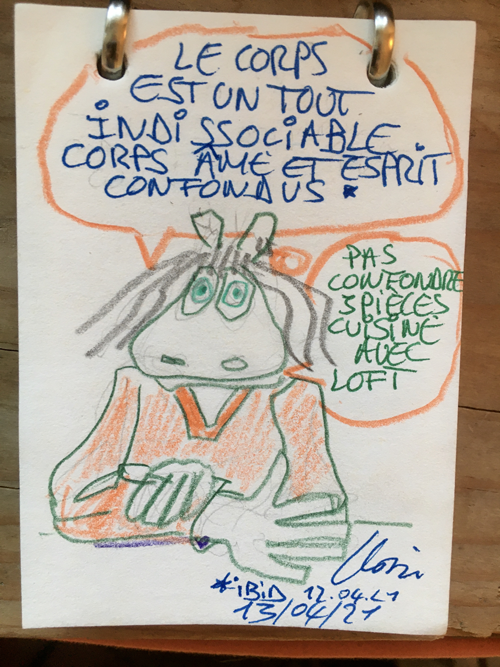 LE CORPS
EST UN TOUT
INDISSOCIABLE
CORPS ÂME ET ESPRIT
CONFONDUS *
PAS
CONFONDRE
3 PIÈCES
CUISINE
AVEC
LOFT
*iBiD 12.04.21
13/04/21